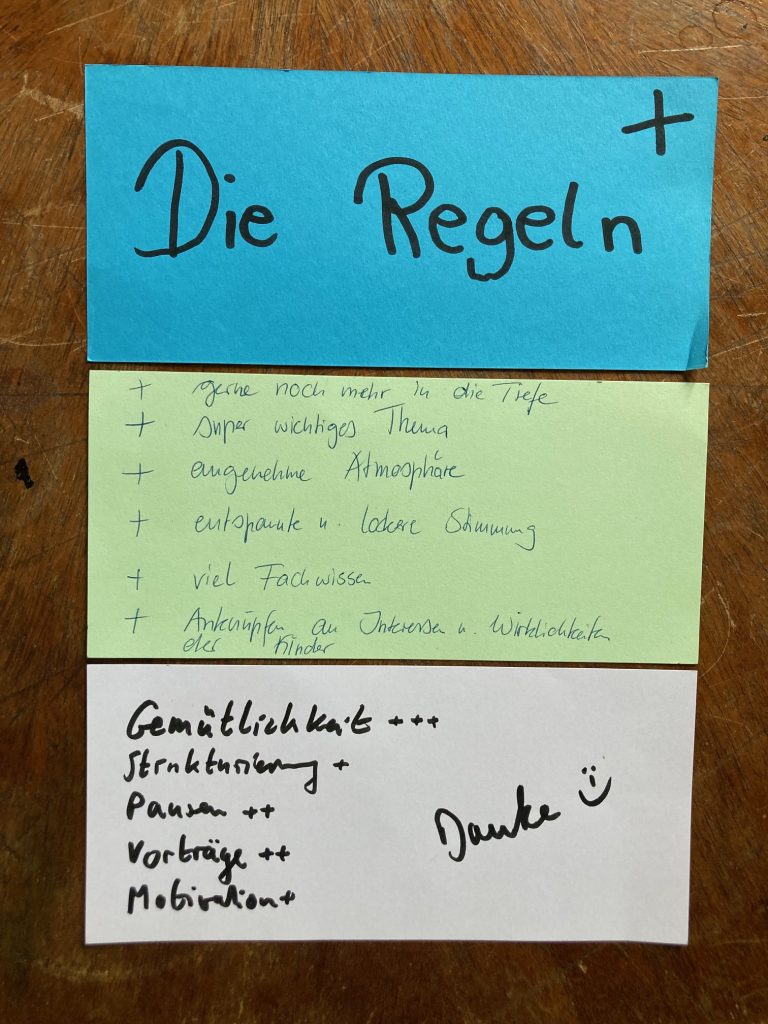 +
Die Regeln
+ gerne noch mehr in die Tiefe
+ super wichtiges Thema
+ angenehme Atmosphäre
+ entspannte u. lockere Stimmung
+ viel Fachwissen
+ Anknüpfen an Interessen u. Wirklichkeiten
der Kinder
Gemütlichkeit +++
Strukturierung +
Pausen ++
Vorträge ++
Motivation+
Danke :)